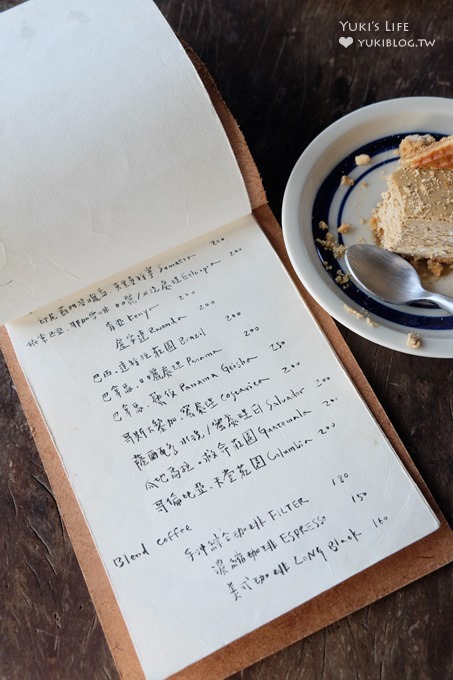 YUKI'S LIFE
YUKIBLOG.TW
印尼 蘇門答臘島 Sumatra 200
衣索比亞 水洗 Ethiopia 200
肯亞 Kenya 200
盧安達 Rwanda 200
巴西. 莊園 Brazil 200
巴拿馬. 蜜處理 Panama 200
巴拿馬. 藝伎 Panama Geisha 250
哥斯大黎加. 蜜處理 Cosdarica 200
薩爾瓦多 水洗/蜜處理 El Salvator 200
瓜地馬拉. 莊園 Guatemala 200
哥倫比亞. 天堂莊園 Columbia 200
Blend coffee 手沖綜合咖啡 FILTER 130
濃縮咖啡 ESPRESSO 150
美式咖啡 LONG Black 160